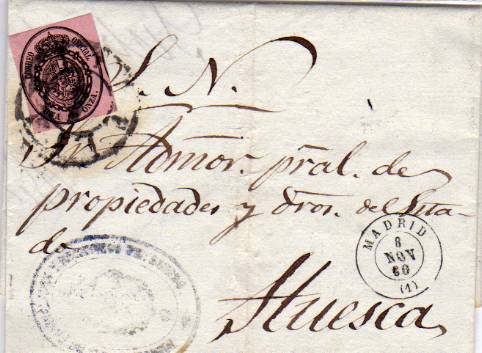 CORREO OFICIAL
ONZA.
S. N.
Sr. Admor. pral. de
propiedades y dros. del Esta-
do
Huesca
MADRID
8
NOV
60
(1)